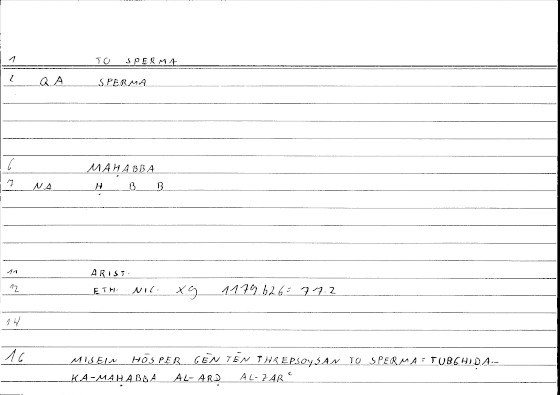 1 TO SPERMA
2 QA SPERMA
6 MAḤABBA
7 NA Ḥ B B
11 ARIST.
12 ETH. NIC. X9 1179b26 =
14
16 MISEIN HŌSPER GĒN TĒN THREPSOYSAN TO SPERMA = TUBGHIḌA
KA-MAḤABBA AL-ARḌ AL-ZARᶜ